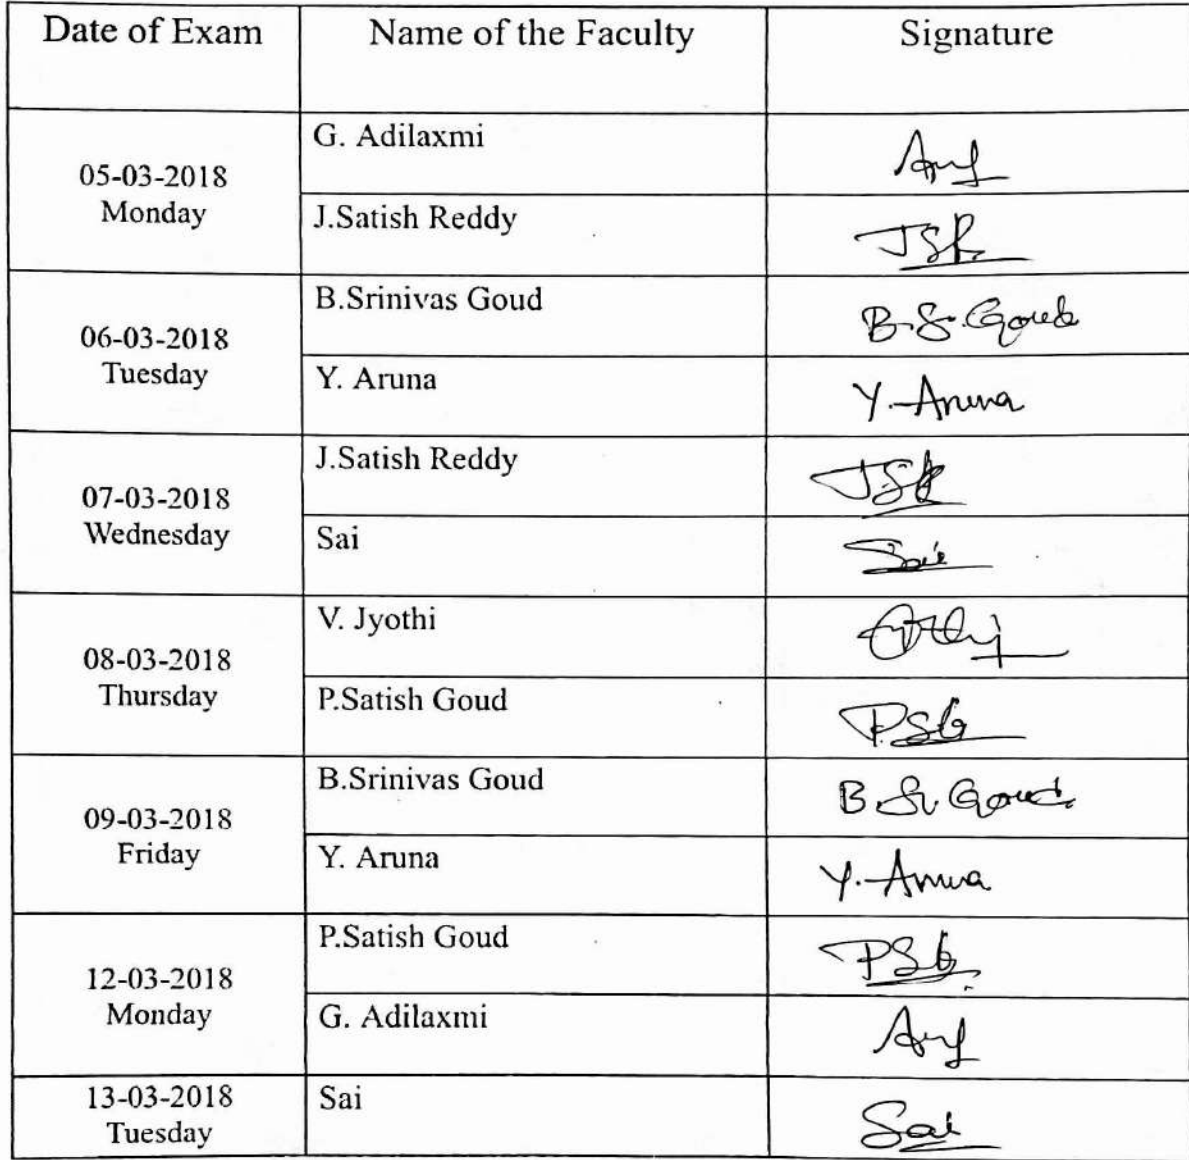 Date of Exam Name of the Faculty Signature
05-03-2018
Monday
G. Adilaxmi
J.Satish Reddy JSR
06-03-2018
Tuesday
B.Srinivas Goud B.S.Goud
Y. Aruna Y. Aruna
07-03-2018
Wednesday
J.Satish Reddy JSR
Sai Sai
08-03-2018
Thursday
V. Jyothi
P.Satish Goud P.SG
09-03-2018
Friday
B.Srinivas Goud B.Sr.Goud
Y. Aruna Y. Aruna
12-03-2018
Monday
P.Satish Goud PSG
G. Adilaxmi
13-03-2018
Tuesday
Sai Sai